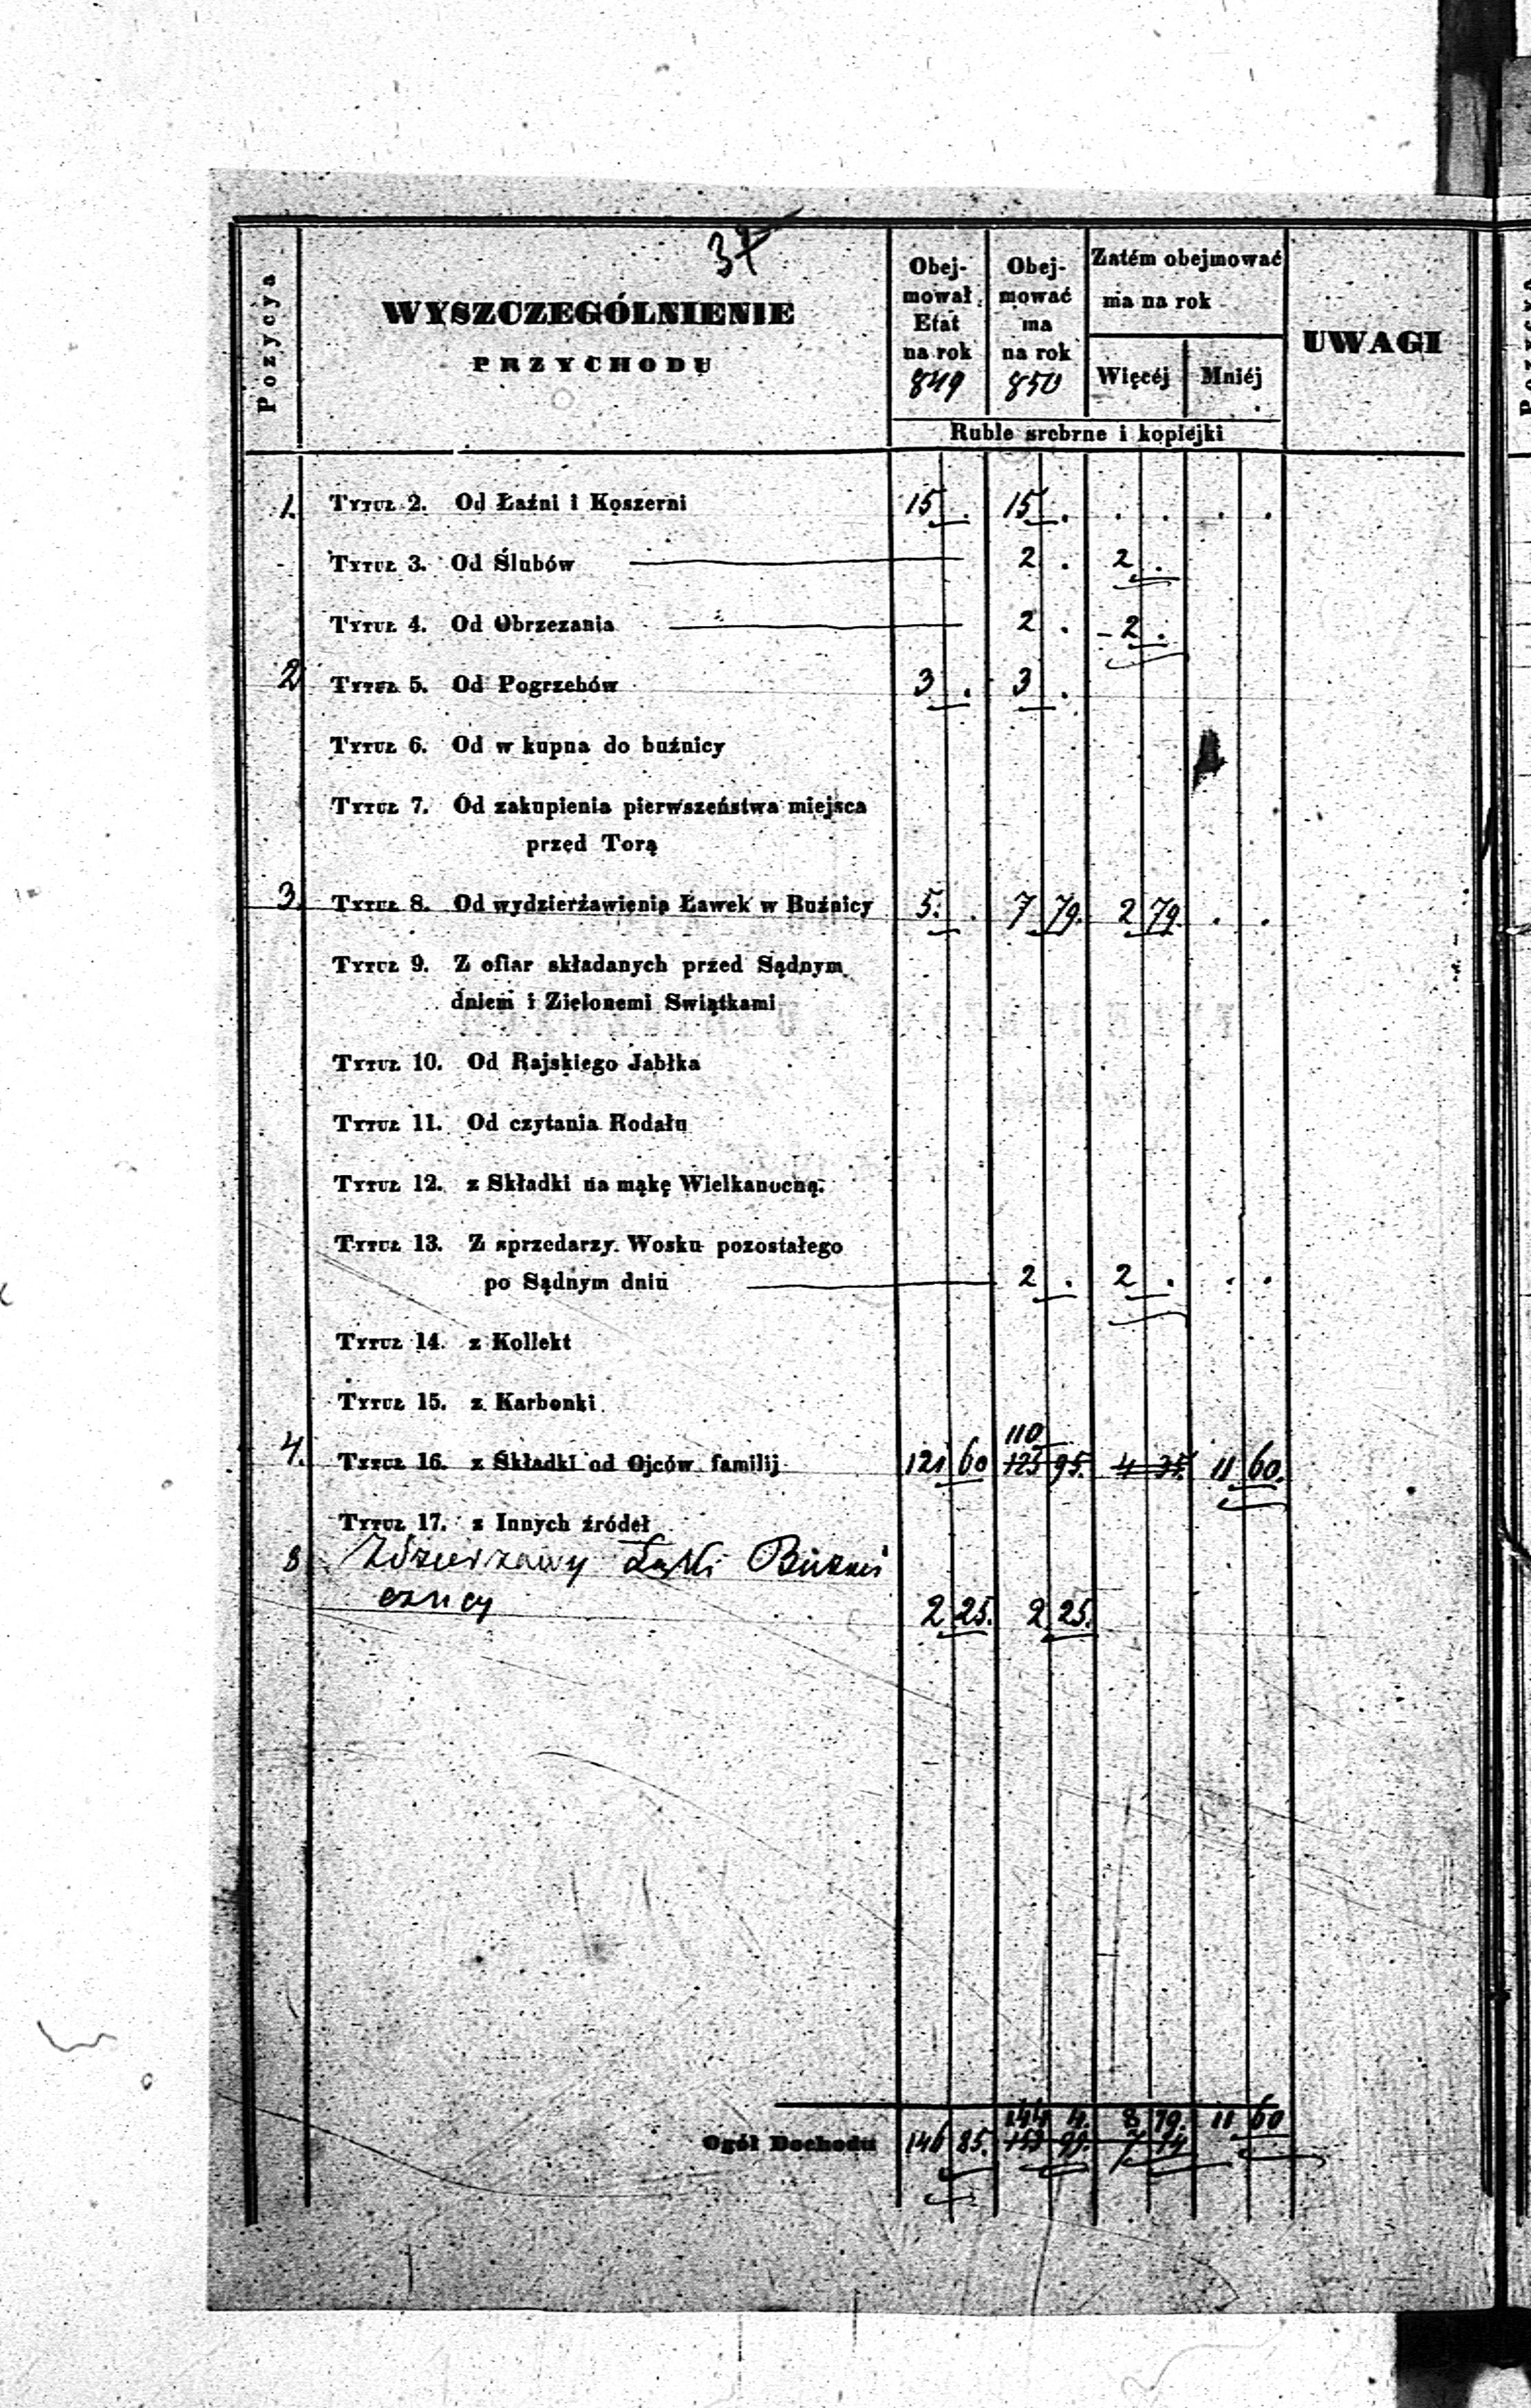 37
Pozycya
WYSZCZEGÓLNIENIE
PRZYCHODU
Obej-
mował
Etat
na rok
849
Obej-
mować
ma
na rok
850
Zatém obejmować
ma na rok
Więcéj Mniéj
UWAGI
Ruble srebrne i kopiejki
1. Tytuł 2. Od Łaźni i Koszerni 15 . 15 . . . . .
Tytuł 3. Od Ślubów 2 . 2 .
Tytuł 4. Od Obrzezania 2 . 2 .
2 Tytuł 5. Od Pogrzebów 3 . 3 .
Tytuł 6. Od w kupna do buźnicy
Tytuł 7. Od zakupienia pierwszeństwa miejsca
przed Torą
3. Tytuł 8. Od wydzierżawienia Ławek w Buźnicy 5. . 7 79. 2 79. . .
Tytuł 9. Z ofiar składanych przed Sądnym
dniem i Zielonemi Swiątkami
Tytuł 10. Od Rajskiego Jabłka
Tytuł 11. Od czytania Rodału
Tytuł 12. z Składki na mąkę Wielkanocną.
Tytuł 13. Z sprzedarzy Wosku pozostałego
po Sądnym dniu 2 . 2 . . .
Tytuł 14. z Kollekt
Tytuł 15. z Karbonki
110
4. Tytuł 16. z Składki od Ojców familij 121 60 125 95. 4 35. 11 60.
Tytuł 17. z Innych źródeł
Zdzierzawy Łąki
2 25. 2 25.
144 4. 8 79. 11 60
Ogół Dochodu 146 85.